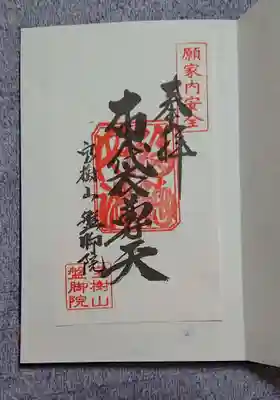 願家内安全
奉拝
布袋尊天
樹山 盤脚院
樹山
盤脚院